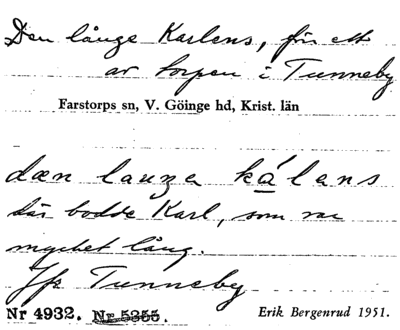 Den långe Karlens, för ett
av torpen i Tunneby
Farstorps sn, V. Göinge hd, Krist. län
dæn lauŋa kálens
där bodde Karl, som var
mycket lång.
Jfr Tunneby
Nr 4932. Nr 5355.
Erik Bergenrud 1951.